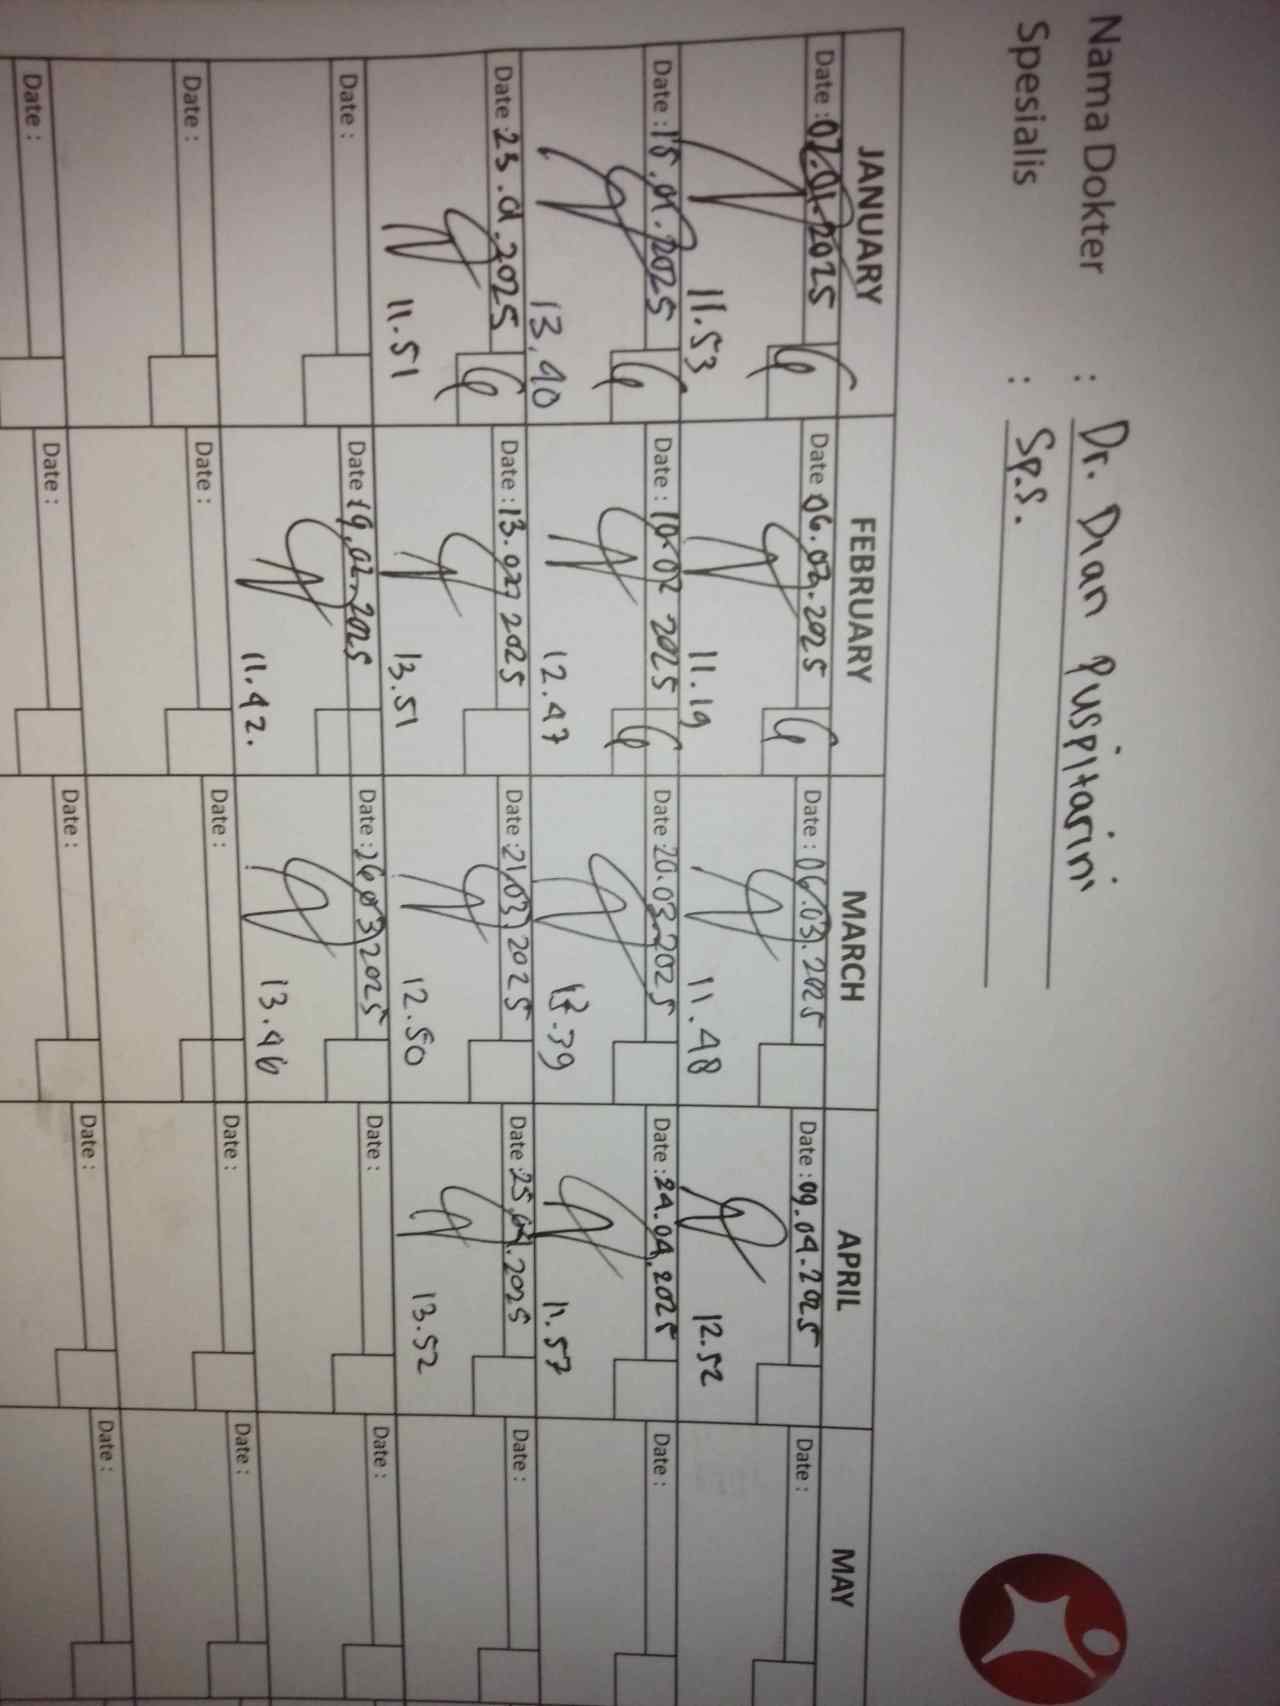 Nama Dokter : Dr. Dian Puspitarini
Spesialis : Sp.S.
JANUARY FEBRUARY MARCH APRIL MAY
Date : 02.01.2025 Date : 06.02.2025 Date : 06.03.2025 Date : 09.04.2025 Date :
11.53 11.19 11.48 12.52
Date : 15.01.2025 Date : 10.02 2025 Date : 20.03.2025 Date : 24.04.2025 Date :
13.40 12.47 13.39 11.57
Date : 23.01.2025 Date : 13.02 2025 Date : 21.03.2025 Date : 25.04.2025 Date :
11.51 13.51 12.50 13.52
Date : Date : 19.02.2025 Date : 26.03.2025 Date : Date :
11.42. 13.46
Date : Date : Date : Date : Date :
Date : Date : Date : Date : Date :